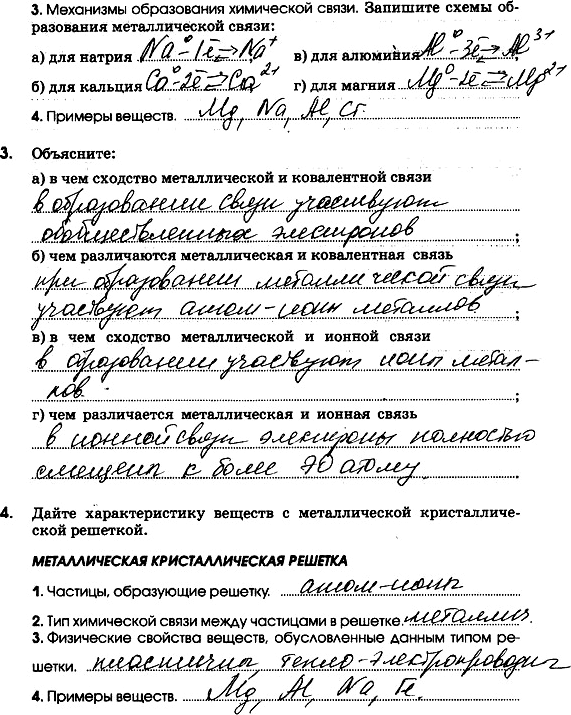 3. Механизмы образования химической связи. Запишите схемы об-
разования металлической связи:
а) для натрия Na⁰ - 1ē ⇄ Na⁺ в) для алюминия Al⁰ - 3ē ⇄ Al³⁺
б) для кальция Ca⁰ - 2ē ⇄ Ca²⁺; г) для магния Mg⁰ - 2ē ⇄ Mg²⁺
4. Примеры веществ. Mg, Na, Al, Cr.
3. Объясните:
а) в чем сходство металлической и ковалентной связи
в образовании связи участвуют
обобществленных электронов;
б) чем различаются металлическая и ковалентная связь
при образовании металлической связи
участвуют атом-ион металлов;
в) в чем сходство металлической и ионной связи
в образовании участвуют ионы метал-
лов.;
г) чем различается металлическая и ионная связь
в ионной связи электроны полностью
смещены к более ЭО атому.
4. Дайте характеристику веществ с металлической кристалличе-
ской решеткой.
МЕТАЛЛИЧЕСКАЯ КРИСТАЛЛИЧЕСКАЯ РЕШЕТКА
1. Частицы, образующие решетку. атом-ионы
2. Тип химической связи между частицами в решетке. металлич.
3. Физические свойства веществ, обусловленные данным типом ре-
шетки. пластичны, тепло-электропроводны
4. Примеры веществ. Mg, Al, Na, Fe.